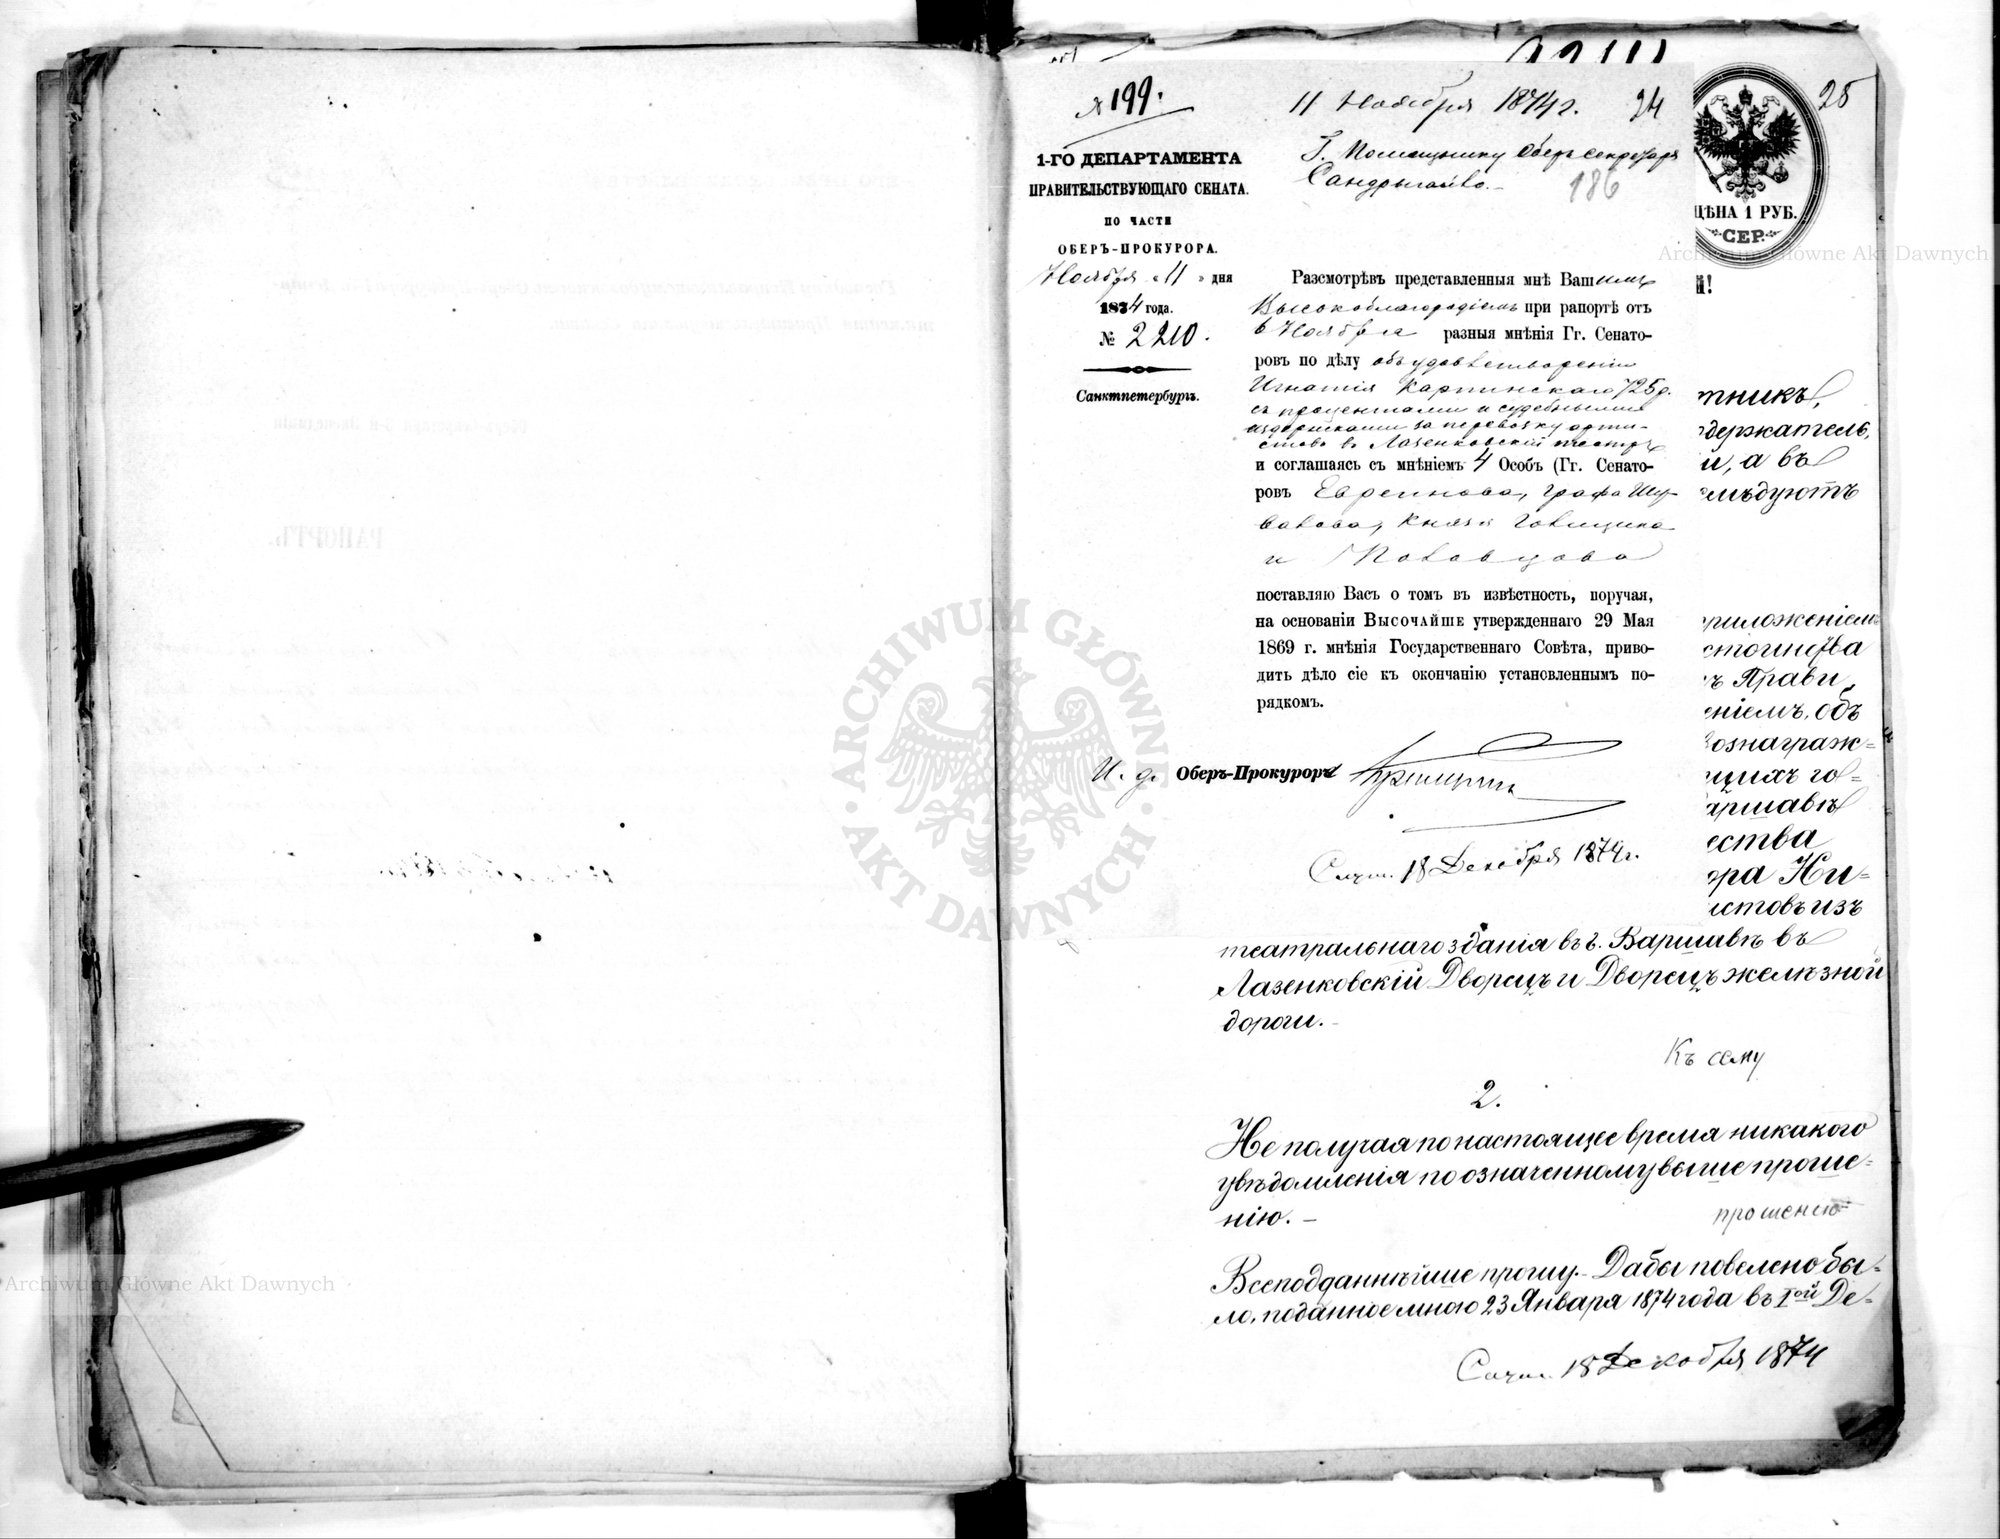 № 199.
11 Ноября 1874 г. 24
25
Г. Помощнику Оберъ секретаря
186
1-ГО ДЕПАРТАМЕНТА
ПРАВИТЕЛЬСТВУЮЩАГО СЕНАТА.
ПО ЧАСТИ
ОБЕРЪ-ПРОКУРОРА.
Ноября „11 „ дня
1874 года.
№ 2210.
Санктпетербургъ.
ЦѢНА 1 РУБ.
СЕР.
й!
Разсмотрѣвъ представленныя мнѣ Вашимъ
Высокоблагородіемъ при рапортѣ отъ
6 Ноября разныя мнѣнія Гг. Сенато-
ровъ по дѣлу объ удовлетвореніи
Игнатія Карпинскаго 725 р.
съ процентами и судебными
издержками за перевозку арти-
стовъ въ Лазенковскій театръ
и соглашаясь съ мнѣніемъ 4 Особъ (Гг. Сенато-
ровъ Евреинова, графа Шу-
валова, Князя Голицына
и Половцова
поставляю Васъ о томъ въ извѣстность, поручая,
на основаніи ВЫСОЧАЙШЕ утвержденнаго 29 Мая
1869 г. мнѣнія Государственнаго Совѣта, приво-
дить дѣло сіе къ окончанію установленнымъ по-
рядкомъ.
И. д. Оберъ-Прокурора
18 Декабря 1874 г.
тникъ,
одержатель,
и, а въ
слѣдуютъ
риложеніемъ
стоинства
ъ Прави
еніемъ, объ
вознаграж=
щихъ го=
аршавѣ
ества
ора Ни=
истовъ изъ
театральнаго зданія въ г. Варшавѣ въ
Лазенковскій Дворецъ и Дворецъ желѣзной
дороги.-
Къ сему
2.
Не получая по настоящее время никакого
увѣдомленія по означенному выше проше=
нію. -
прошенію
Всеподданнѣйше прошу.- Дабы повелено бы=
ло, поданное мною 23 Января 1874 года въ 1ой Де=
18 Декабря 1874
Archiwum Główne Akt Dawnych
ARCHIWUM GŁÓWNE · AKT DAWNYCH ·
Archiwum Główne Akt Dawnych